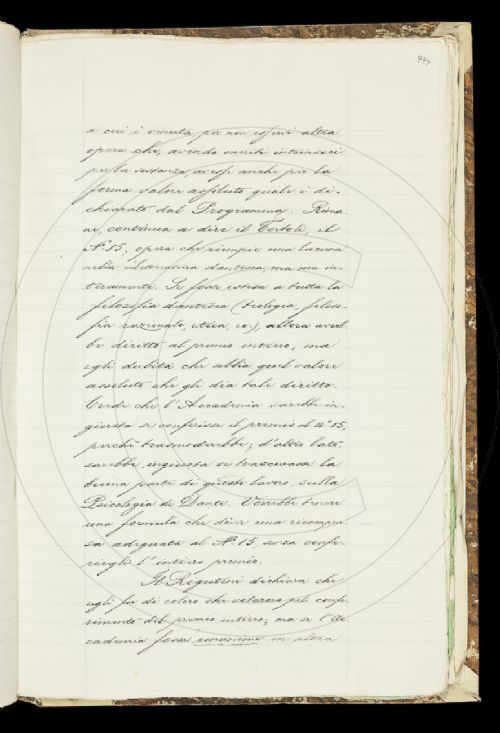 a cui è venuta, per non esservi altra
opera che, avendo meriti intrinseci
per la sostanza, avesse anche per la
forma valore assoluto quale è di-
chiarato dal Programma. Rima
ne, continua a dire il Tortoli, il
N.º 15, opera che riempie una lacuna
nella Letteratura dantesca, ma non in-
teramente. Se fosse estesa a tutta la
filosofia dantesca (teologia, filoso-
fia razionale, etica, ec.), allora avreb-
be diritto al premio intiero; ma
egli dubita che abbia quel valore
assoluto che gli dia tale diritto.
Crede che l'Accademia sarebbe in-
giusta se conferisse il premio al n.º 15,
perchè trasmoderebbe; d'altro lato
sarebbe ingiusta se trascurasse la
buona parte di questo lavoro sulla
Psicologia di Dante. Vorrebbe trovare
una formula che dia una ricompen
sa adeguata al N.º 15, senza confe-
rirgli l'intiero premio.
Il Rigutini dichiara che
egli fu di coloro che votarono pel confe
rimento del premio intiero; ma se l'Ac
cademia fosse unanime in altra